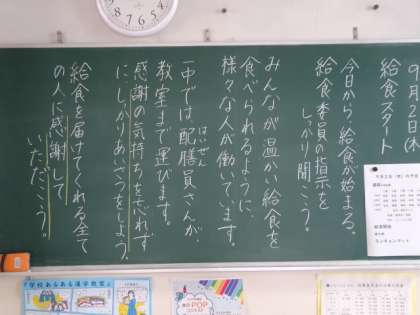 9月2日(木)
給食スタート
今日から、給食が始まる。
給食委員の指示を
しっかり聞こう。
みんなが温かい給食を
食べられるように、
様々な人が働いています。
一中では配膳員さんが
はいぜん
教室まで運びます。
感謝の気持ちを忘れず
に、しっかりあいさつをしよう。
給食を届けてくれる全て
の人に感謝して
いただこう。
ランチョンマット
学校あるある漢字教室
POP